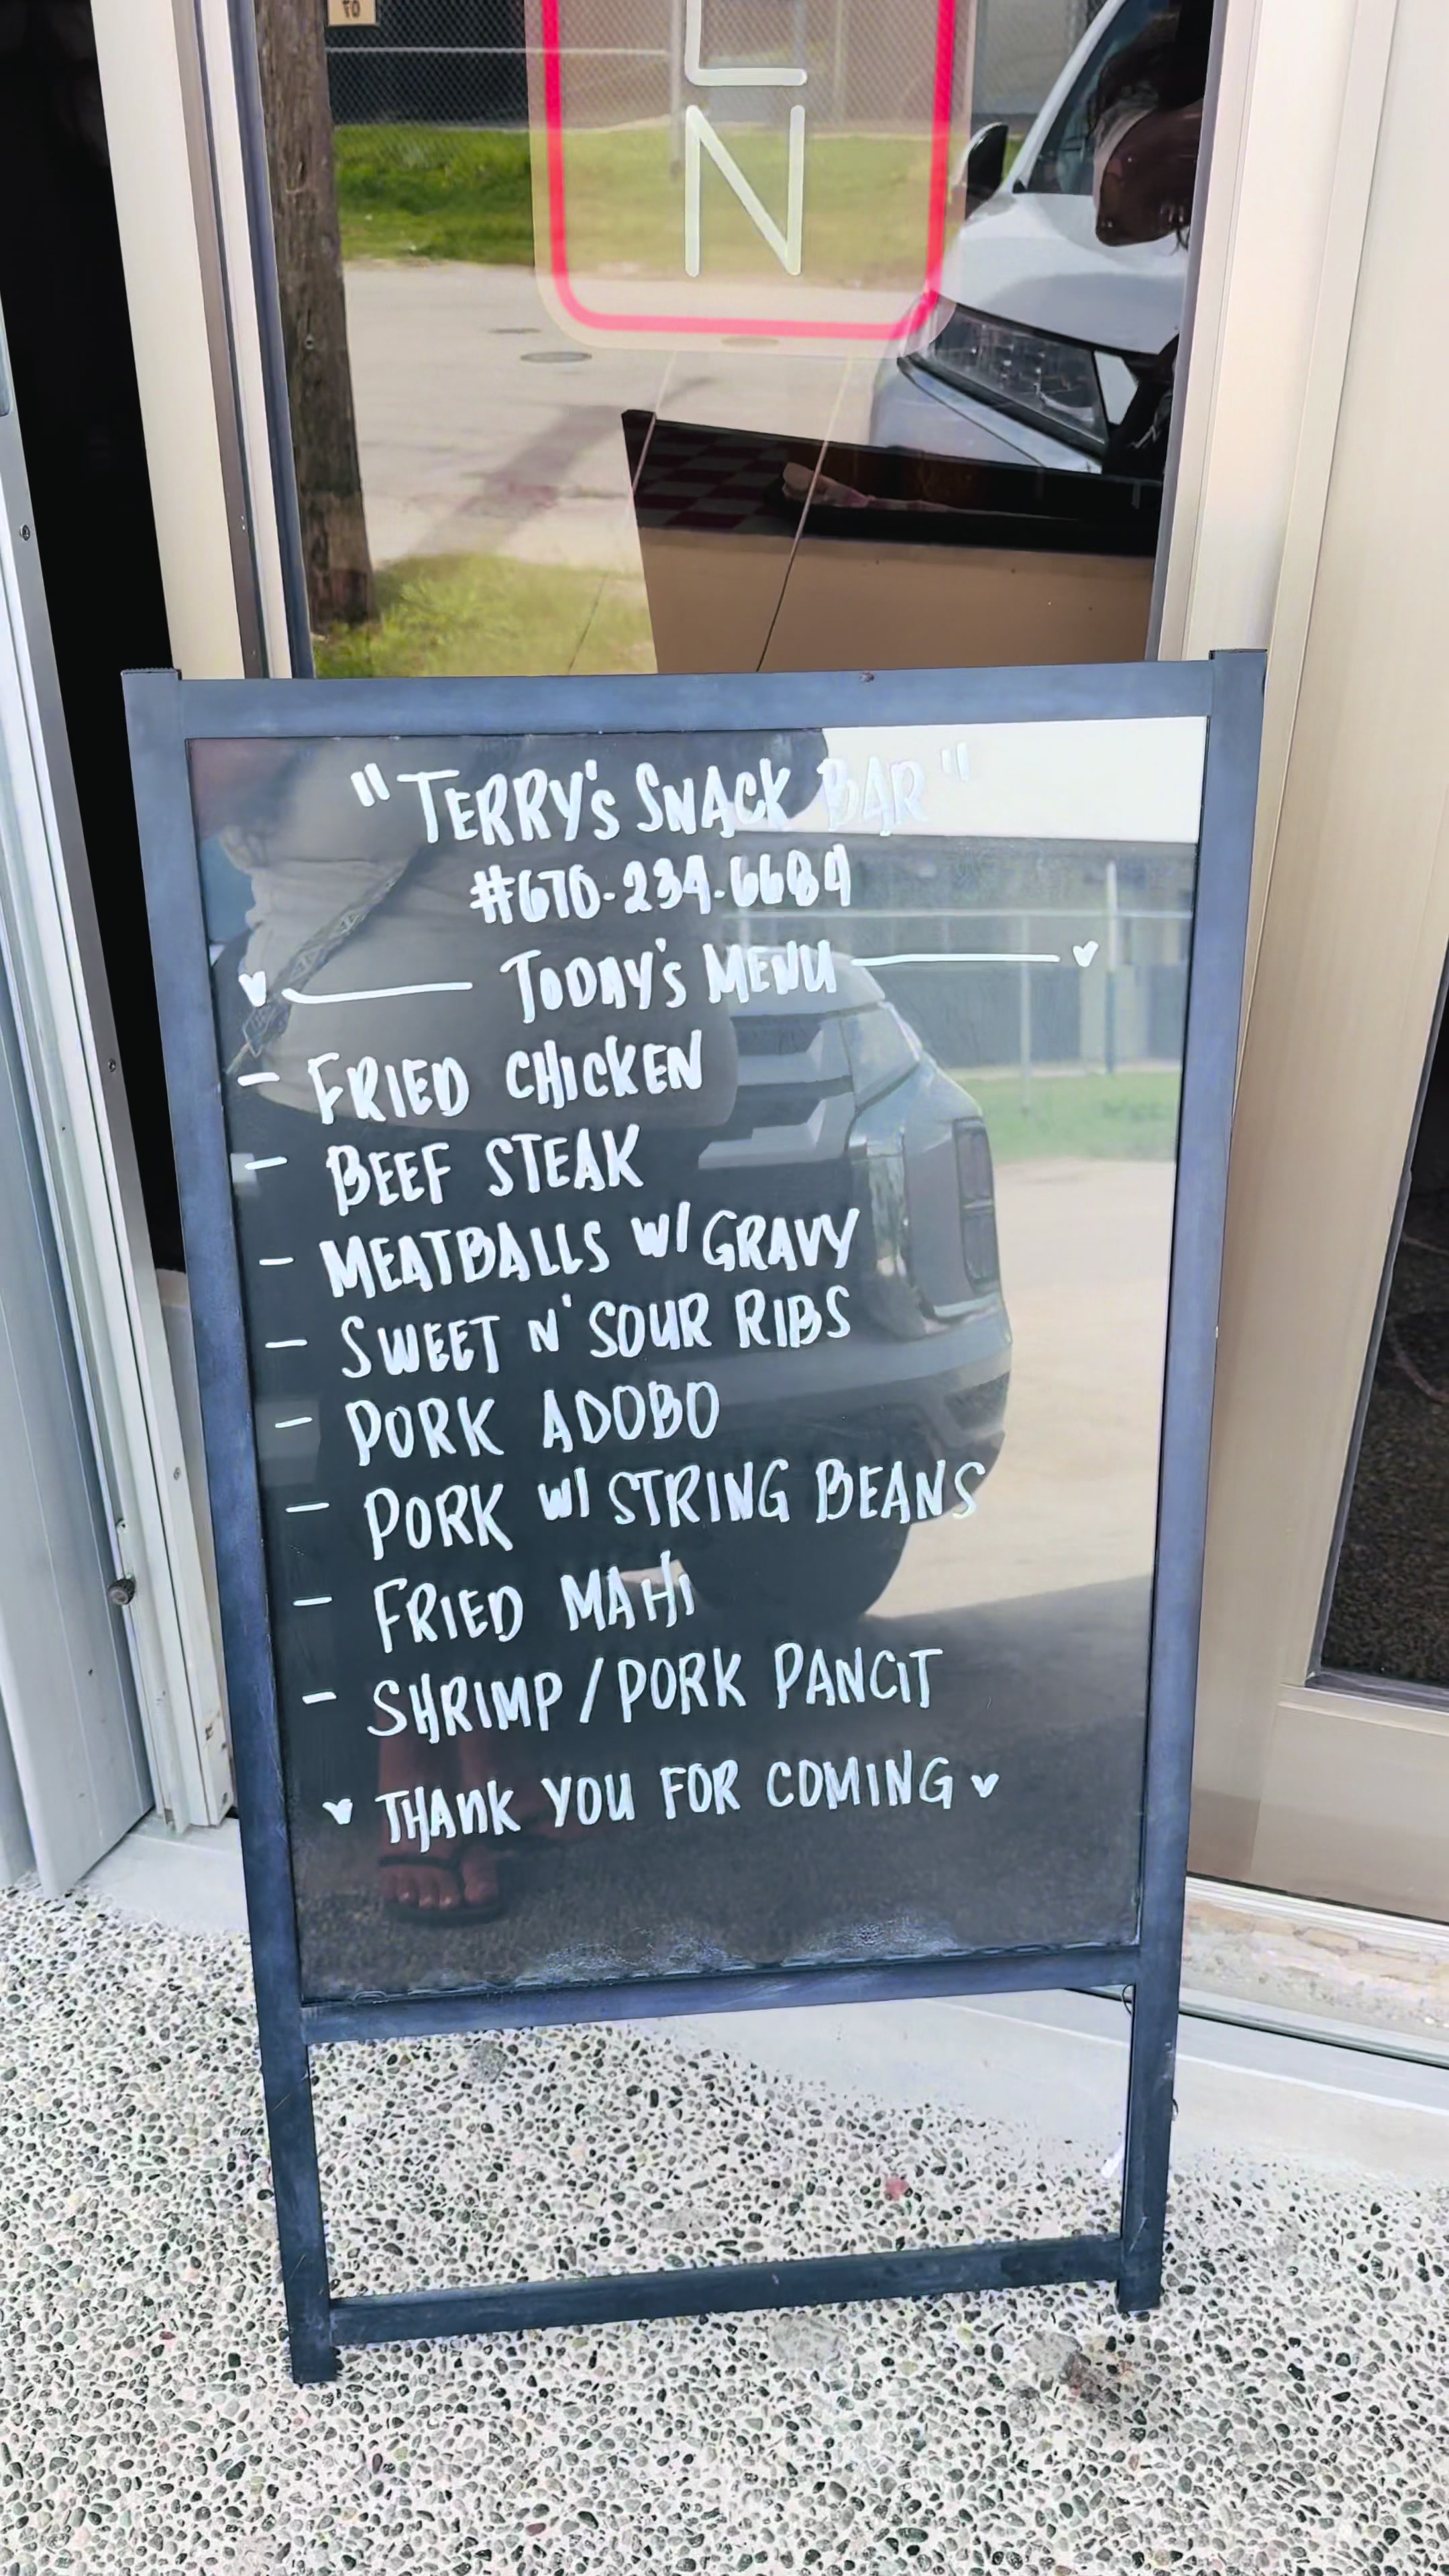 EN
"TERRY'S SNACK BAR"
#670-234-6684
TODAY'S MENU
- FRIED CHICKEN
- BEEF STEAK
- MEATBALLS W/ GRAVY
- SWEET N' SOUR RIBS
- PORK ADOBO
- PORK W/ STRING BEANS
- FRIED MAHI
- SHRIMP/PORK PANCIT
♥ THANK YOU FOR COMING ♥